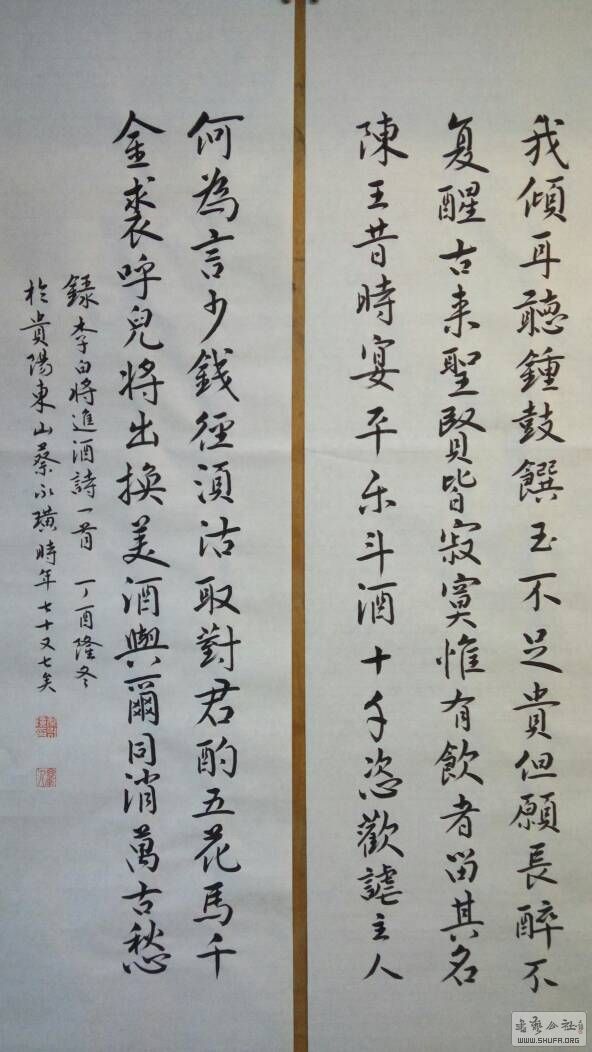 我傾耳聽鍾鼓饌玉不足貴但願長醉不
复醒古来聖賢皆寂寞惟有飲者留其名
陳王昔時宴平乐斗酒十千恣歡謔主人
何為言少錢徑須沽取對君酌五花馬千
金裘呼兒將出換美酒與爾同消萬古愁
録李白将進酒詩一首 丁酉隆冬
於貴陽東山蔡永璜時年七十又七矣
書藝公社
WWW.SHUFA.ORG